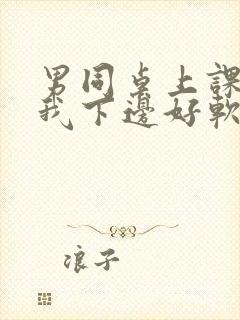 男同桌上課
我下邊好軟
浪子